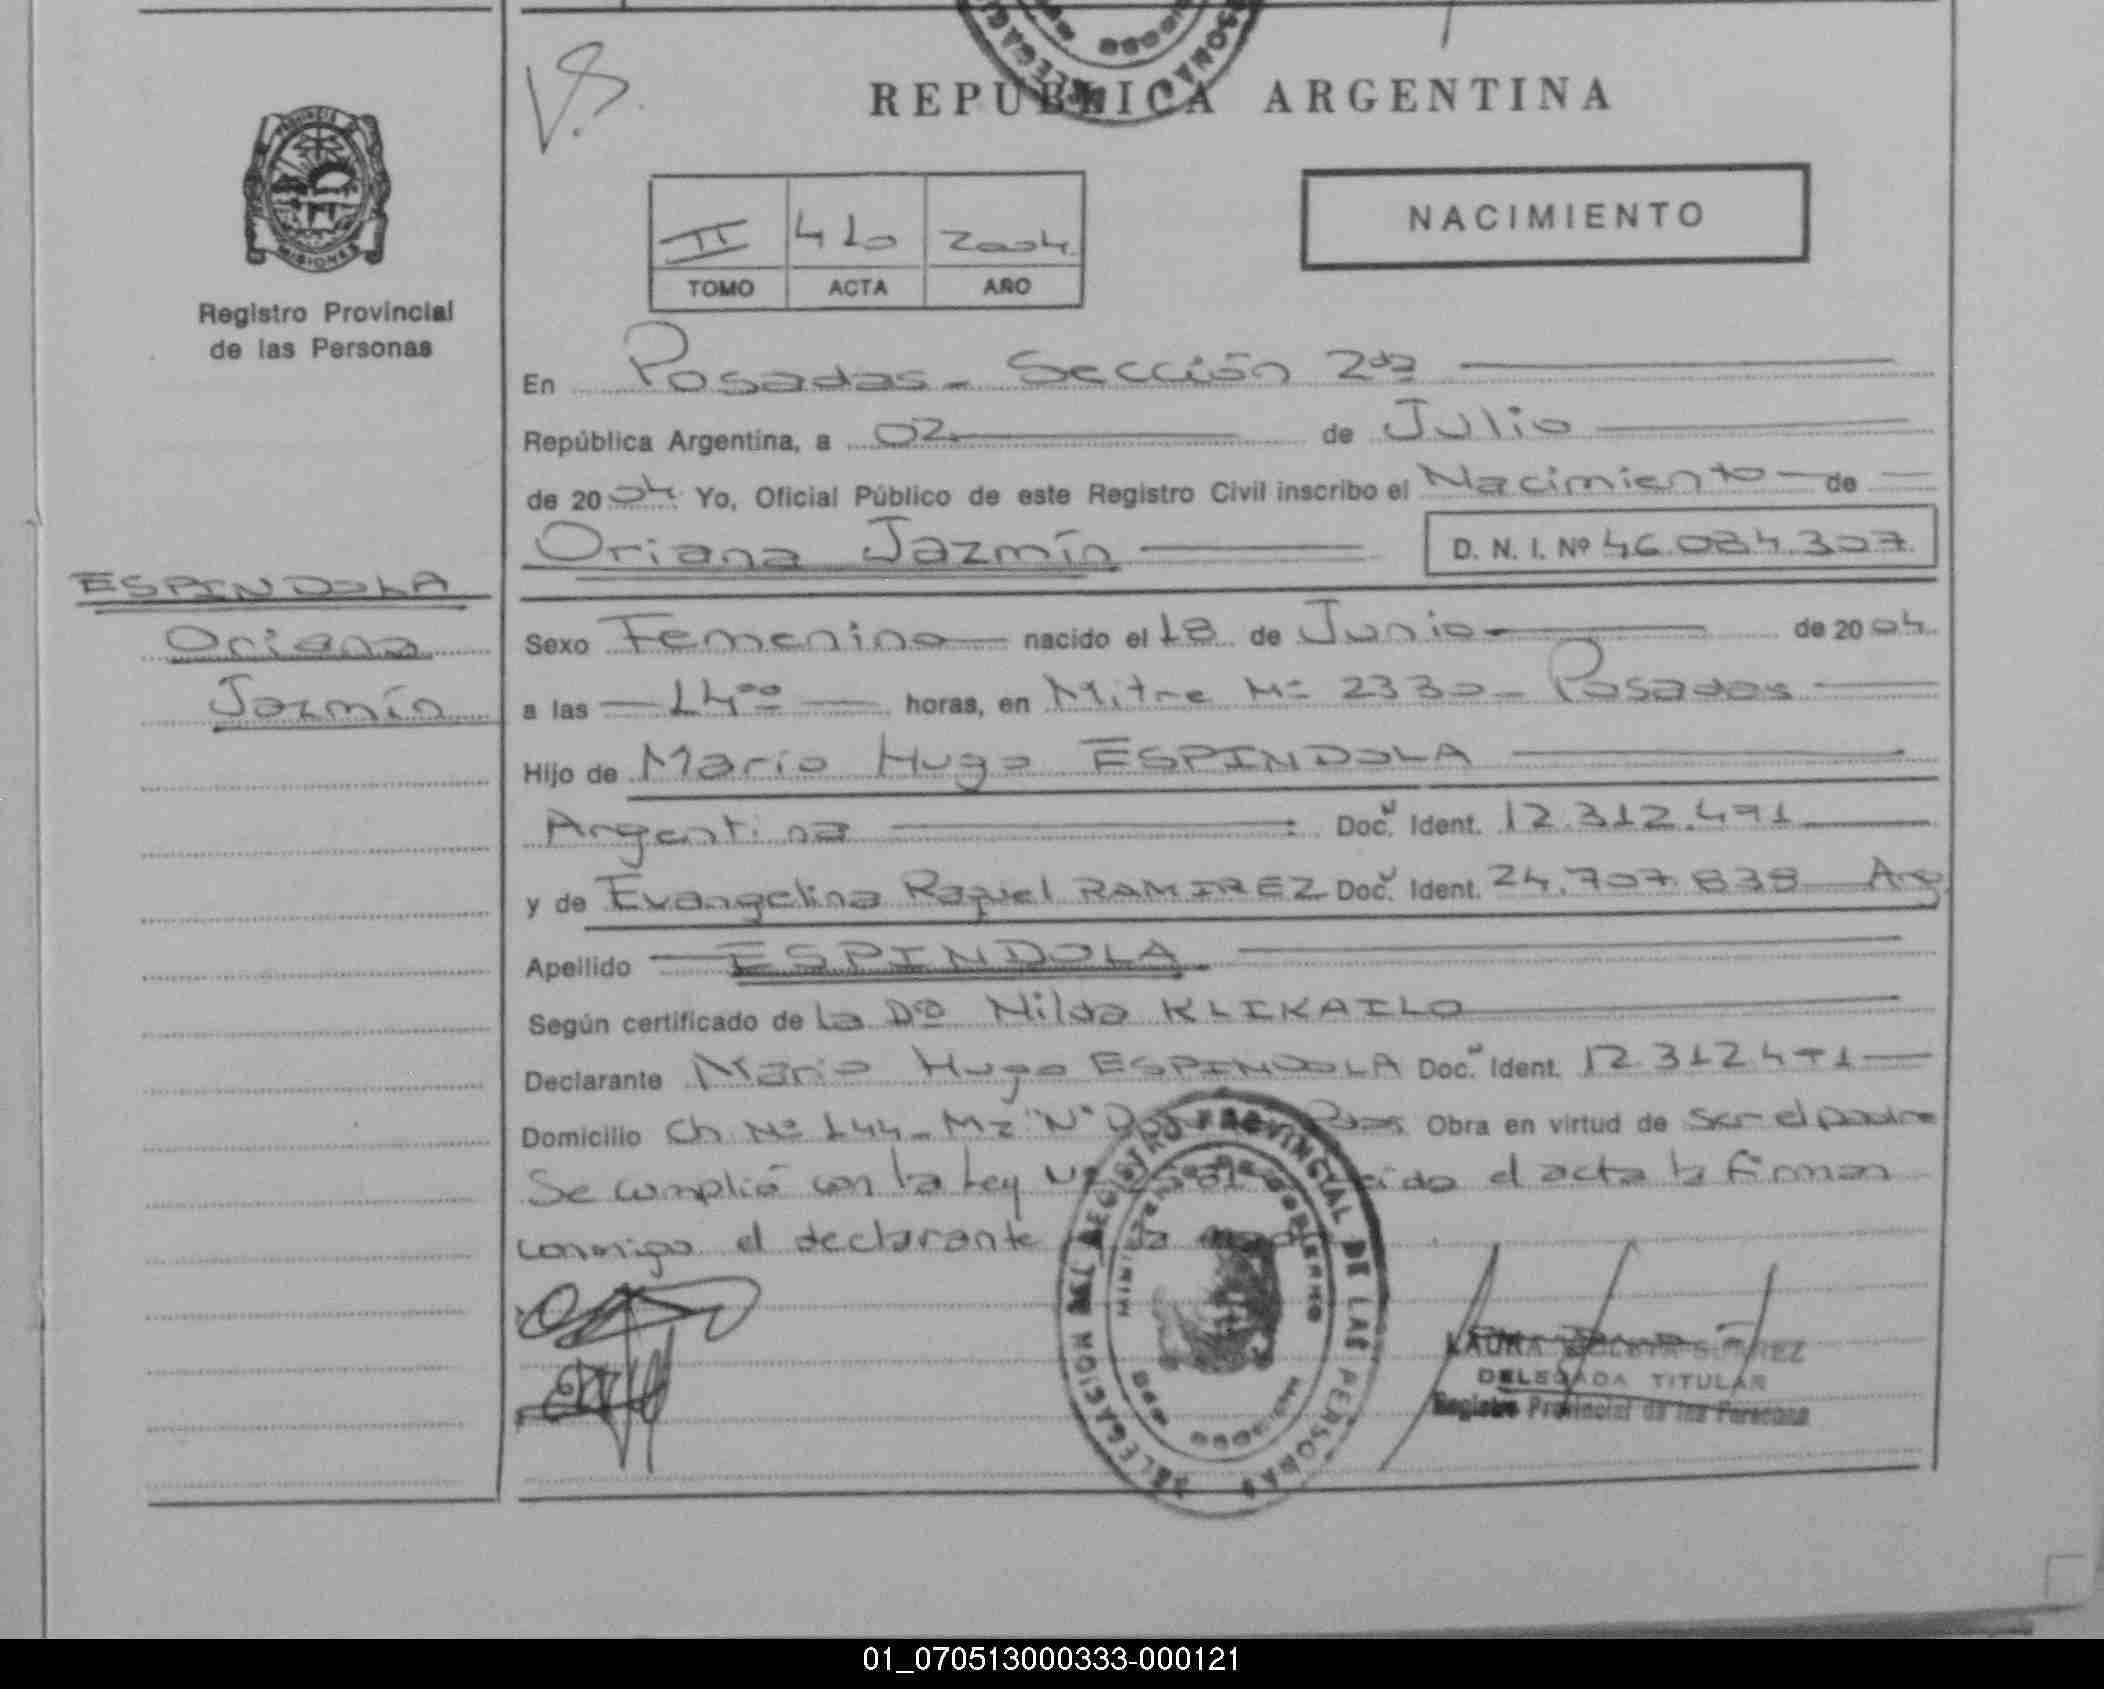 REPUBLICA ARGENTINA
V.B.
NACIMIENTO
II 410 2004
TOMO ACTA AÑO
PROVINCIA DE MISIONES
Registro Provincial
de las Personas
En Posadas - Sección 2da
República Argentina, a 02 de Julio
de 2004 Yo, Oficial Público de este Registro Civil inscribo el Nacimiento de
Oriana Jazmín D. N. I. Nº 46.084.307
ESPINDOLA
Oriana
Jazmín
Sexo Femenino nacido el 18 de Junio de 2004
a las 14oo horas, en Mitre Nº 2330 - Posadas
Hijo de Mario Hugo ESPINDOLA
Argentina Doc. Ident. 12.312.471
y de Evangelina Raquel RAMIREZ Doc. Ident. 24.707.838 Arg
Apellido ESPINDOLA
Según certificado de La Dra Nilda KLIKAILO
Declarante Mario Hugo ESPINDOLA Doc. Ident. 12.312.471
Domicilio Ch Nº 144 - Mz "N" Obra en virtud de ser el padre
Se cumplió con la Ley el acta la firman
conmigo el declarante y la
DELEGACION DEL REGISTRO PROVINCIAL DE LAS PERSONAS
MINISTERIO DE GOBIERNO
LAURA SUAREZ
DELEGADA TITULAR
Registro Provincial de las Personas
01_070513000333-000121